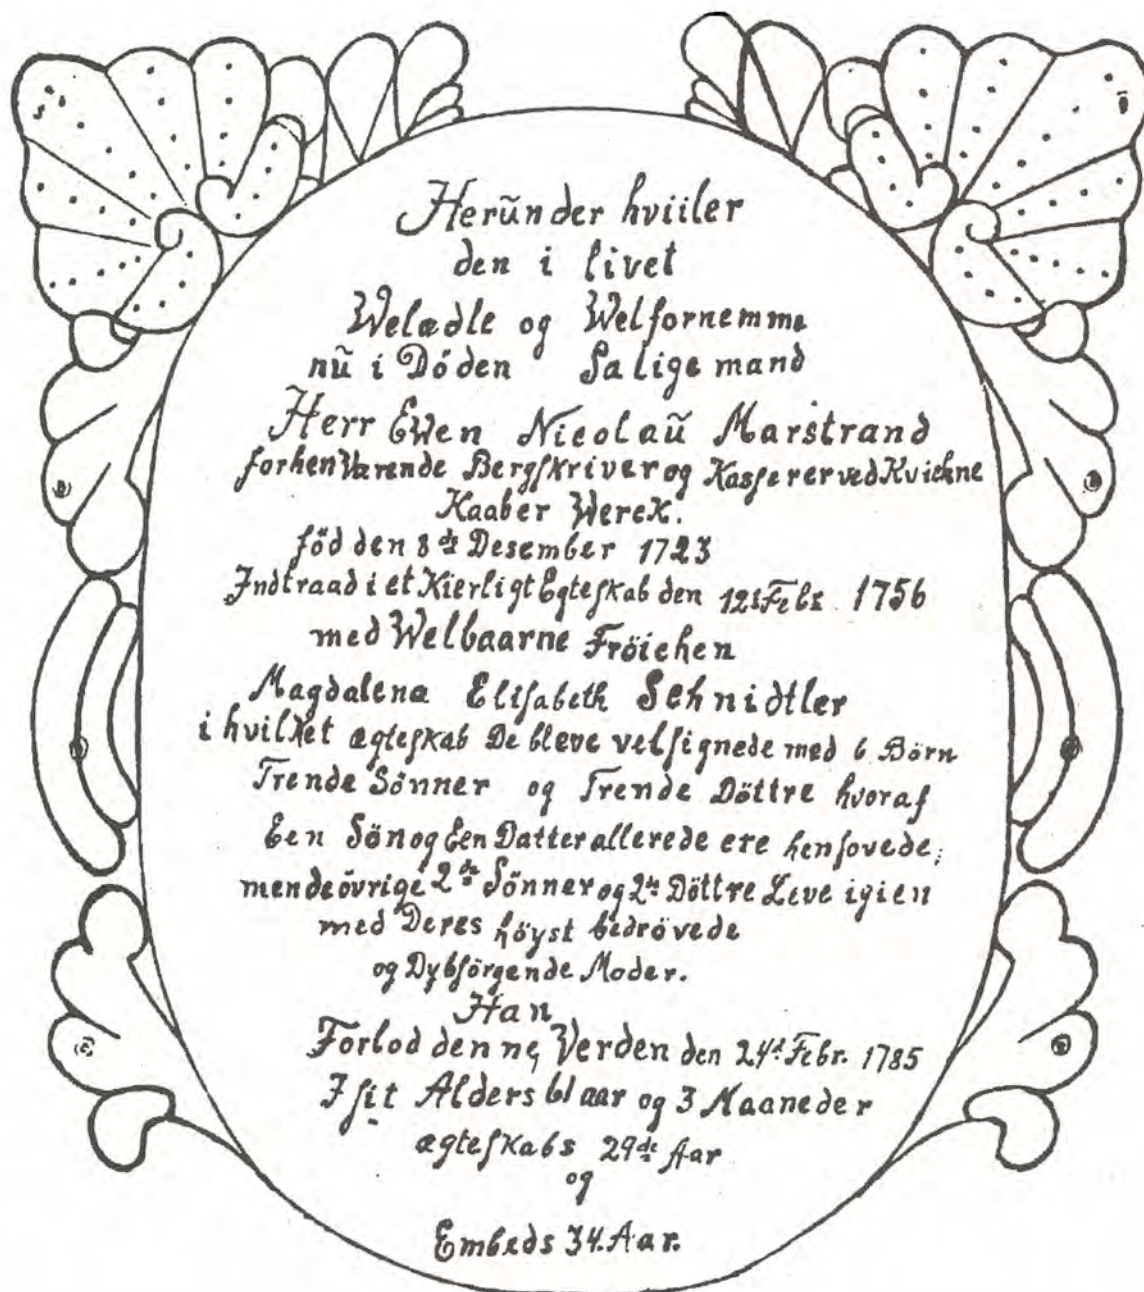 Herũnder hviiler
den i livet
Welædle og Welfornemme
nũ i Döden Salige mand
Herr Ewen Nicolaũ Marstrand
forhenværende Bergſkriver og Kasſerer ved Kvickne
Kaaber Werck.
föd den 8de Desember 1723
Indtraad i et Kierligt Egteſkab den 12t Febr 1756
med Welbaarne Fröichen
Magdalena Eliſabeth Schnidtler
i hvilket ægteſkab De bleve velſignede med 6 Börn
Trende Sönner og Trende Döttre hvoraf
Een Sön og Een Datter allerede ere henſovede;
men de övrige 2de Sönner og 2de Döttre Leve igien
med Deres höyst bedrövede
og Dybſörgende Moder.
Han
Forlod denne Verden den 24t Febr. 1785
I ſit Alders 61 aar og 3 Maaneder
ægteſkabs 29de Aar
og
Embeds 34. Aar.